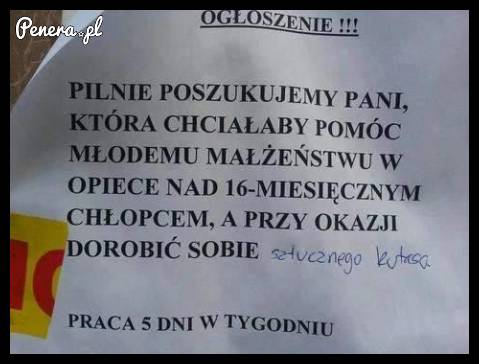 Penera.pl
OGŁOSZENIE !!!
PILNIE POSZUKUJEMY PANI,
KTÓRA CHCIAŁABY POMÓC
MŁODEMU MAŁŻEŃSTWU W
OPIECE NAD 16-MIESIĘCZNYM
CHŁOPCEM, A PRZY OKAZJI
DOROBIĆ SOBIE sztucznego kutasa
PRACA 5 DNI W TYGODNIU